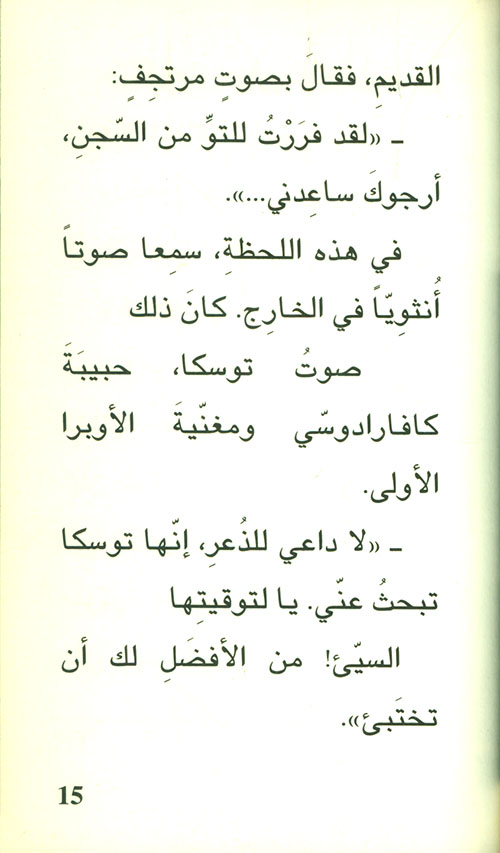 القديمِ، فقالَ بصوتٍ مرتجِفٍ:
ـ «لقد فرَرْتُ للتوِّ من السّجنِ،
أرجوكَ ساعِدني...».
في هذه اللحظةِ، سمِعا صوتاً
أُنثوِيّاً في الخارِج. كانَ ذلك
صوتُ توسكا، حبيبَةَ
كافارادوسّي ومغنّيةَ الأوبرا
الأولى.
ـ «لا داعي للذُعرِ، إنّها توسكا
تبحثُ عنّي. يا لتوقيتِها
السيّئ! من الأفضَلِ لك أن
تختَبئ».
15